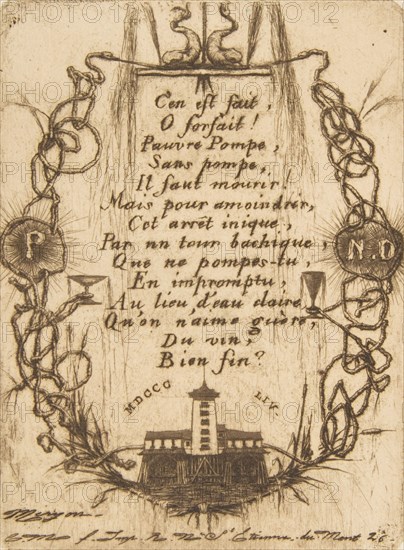 C'en est fait,
O forfait!
Pauvre Pompe,
Sans pompe,
Il faut mourir!
Mais pour amoindrir,
Cet arrêt inique,
Par un tour bachique,
Que ne pompes-tu,
En impromptu,
Au lieu d'eau claire,
Qu'on n'aime guère,
Du vin,
Bien fin?
P.
N.D
MDCCC LIV.
Meryon
C M f. Imp. R. N. St Etienne-du-Mont 26